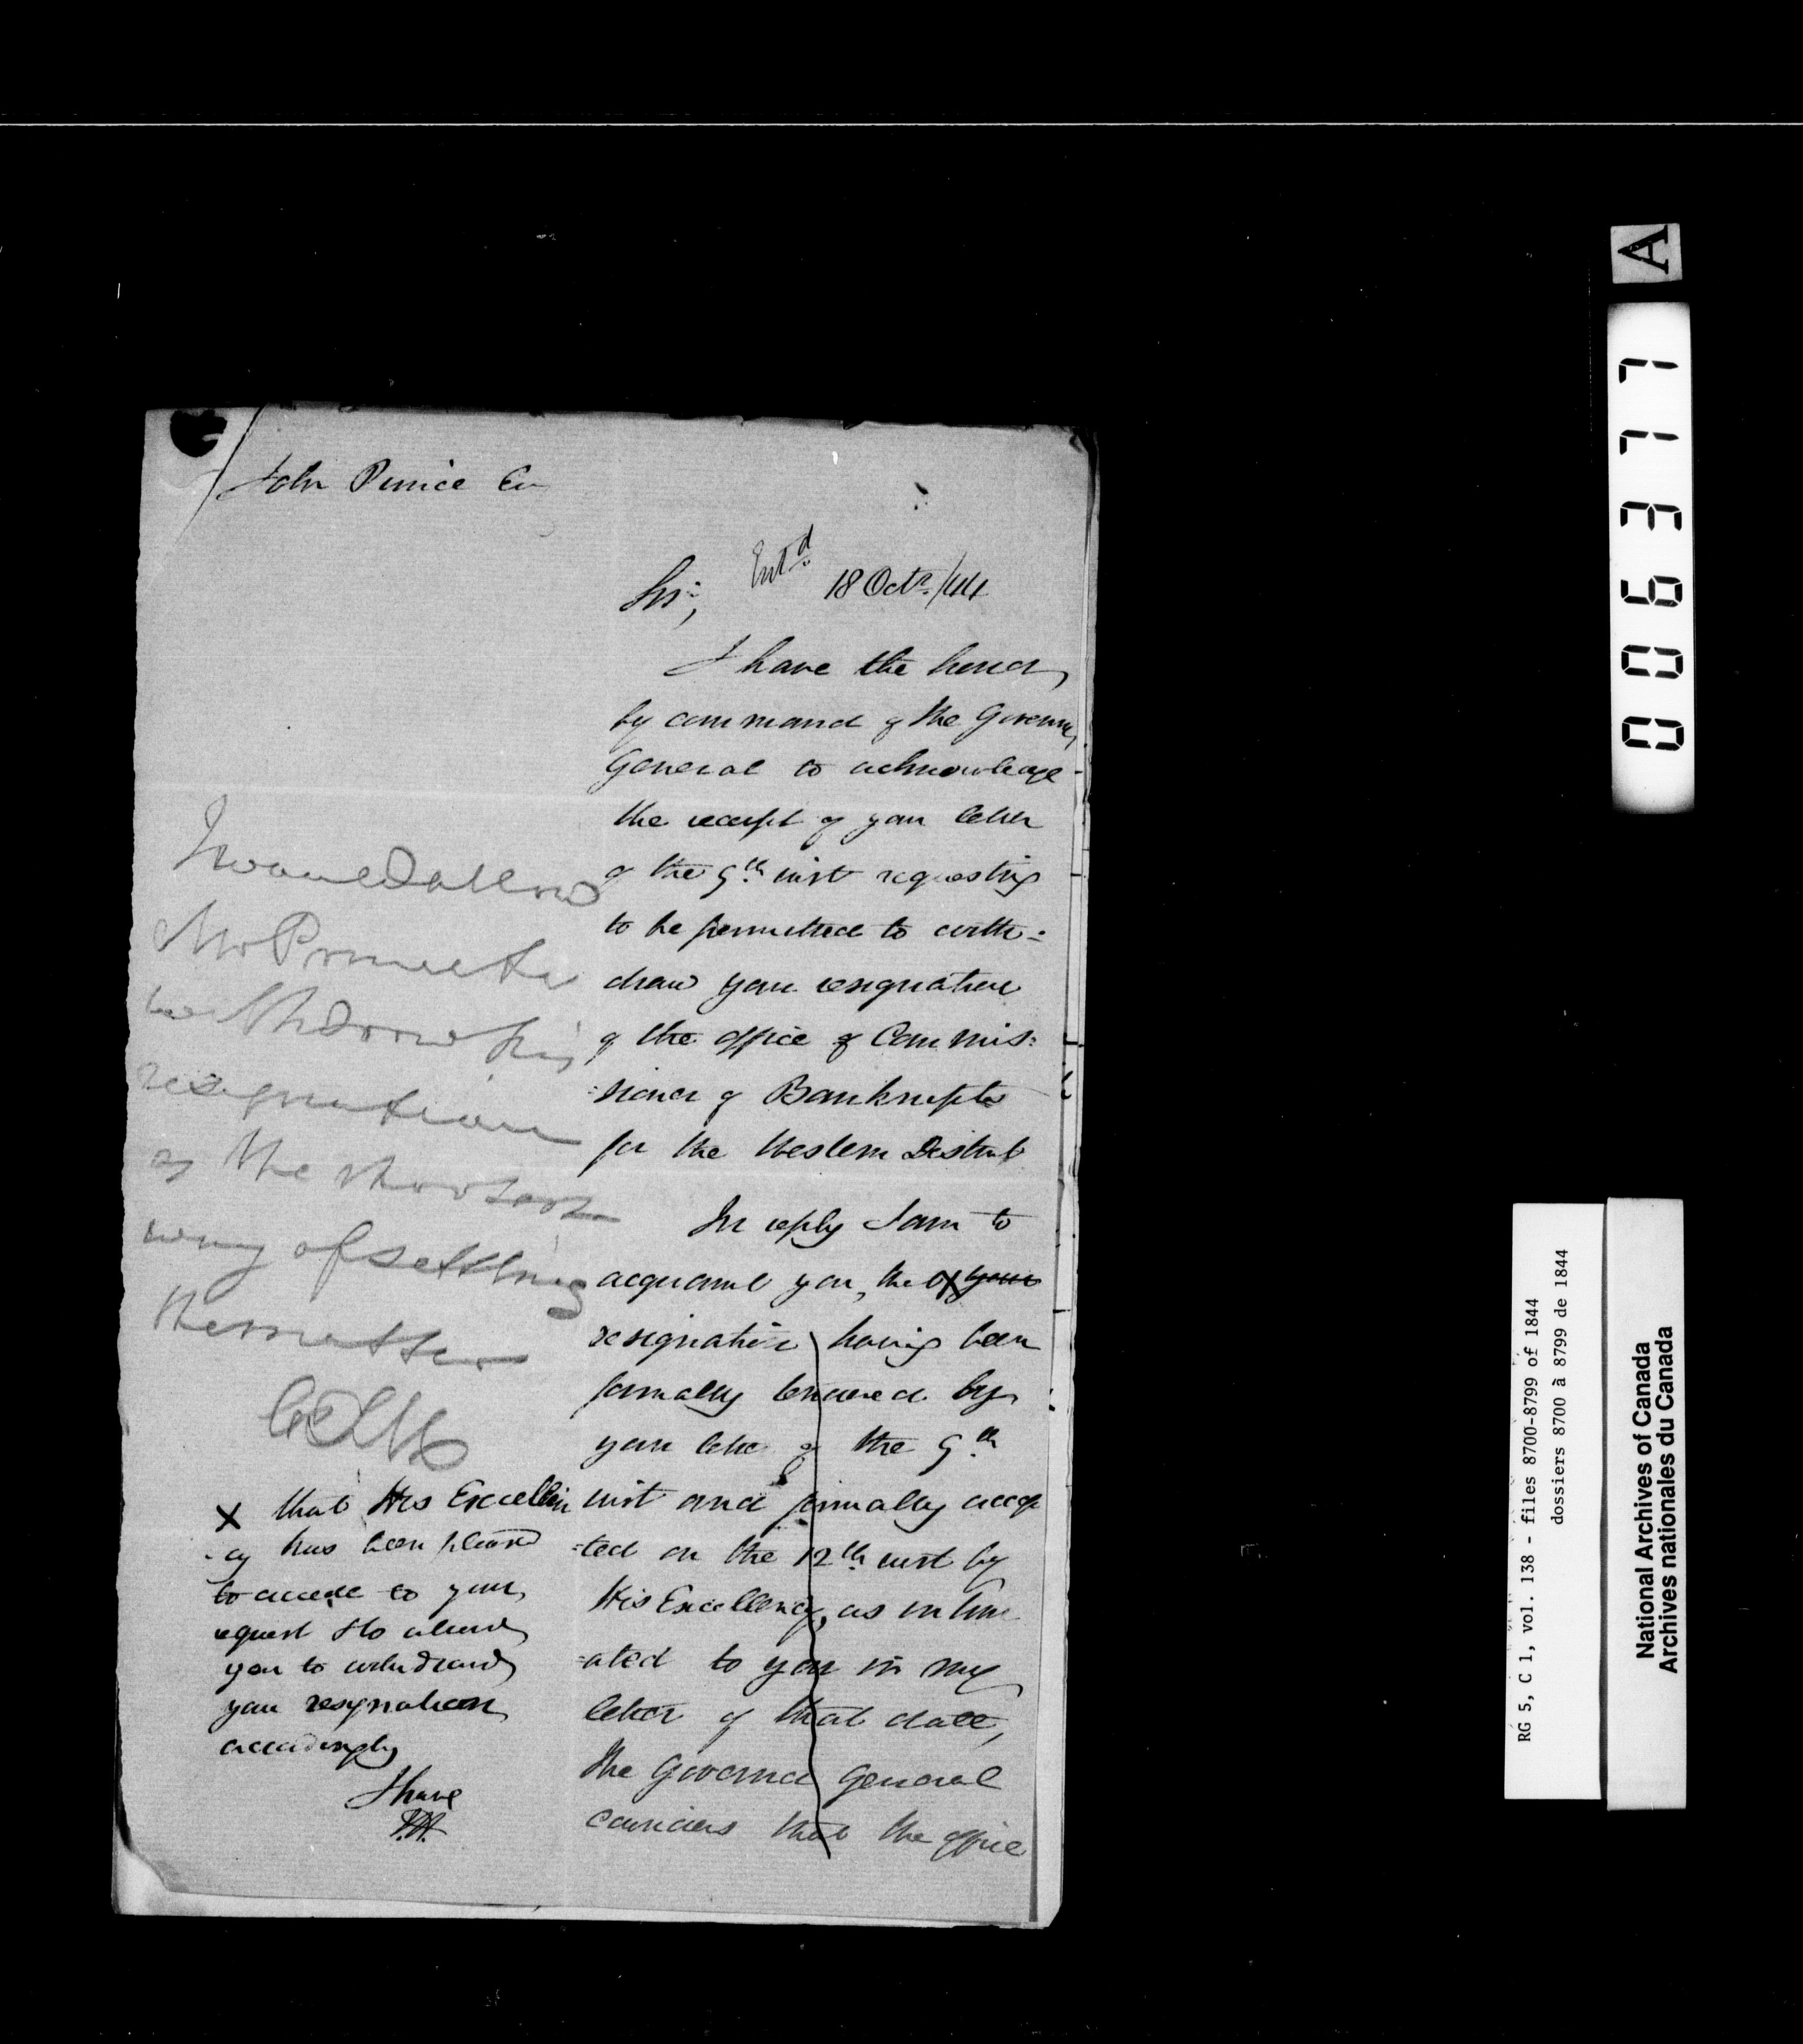 John Prince Esq
Entd
Sir, 18 Octr/44
I have the honor,
by command of the Governor
General to acknowledge
the receipt of your letter
of the 9th inst requesting
to be permitted to with=
draw your resignation
of the office of Commis=
=sioner of Bankrupts
for the Western District
In reply I am to
acquaint you, that X your
resignation having been
formally tendered by
your letter of the 9th
inst and formally accep
=ted on the 12th inst by
His Excellency, as intim
=ated to you in my
letter of that date,
the Governor General
considers that the office
I would allow
Mr Prince to
withdraw his
resignation
as the shortest
way of settling
the matter
X that His Excellen
-cy has been pleased
to accede to your
request & to allow
you to withdraw
your resignation
accordingly
I have
A
006377
RG 5, C 1, vol. 138 - files 8700-8799 of 1844
dossiers 8700 à 8799 de 1844
National Archives of Canada
Archives nationales du Canada